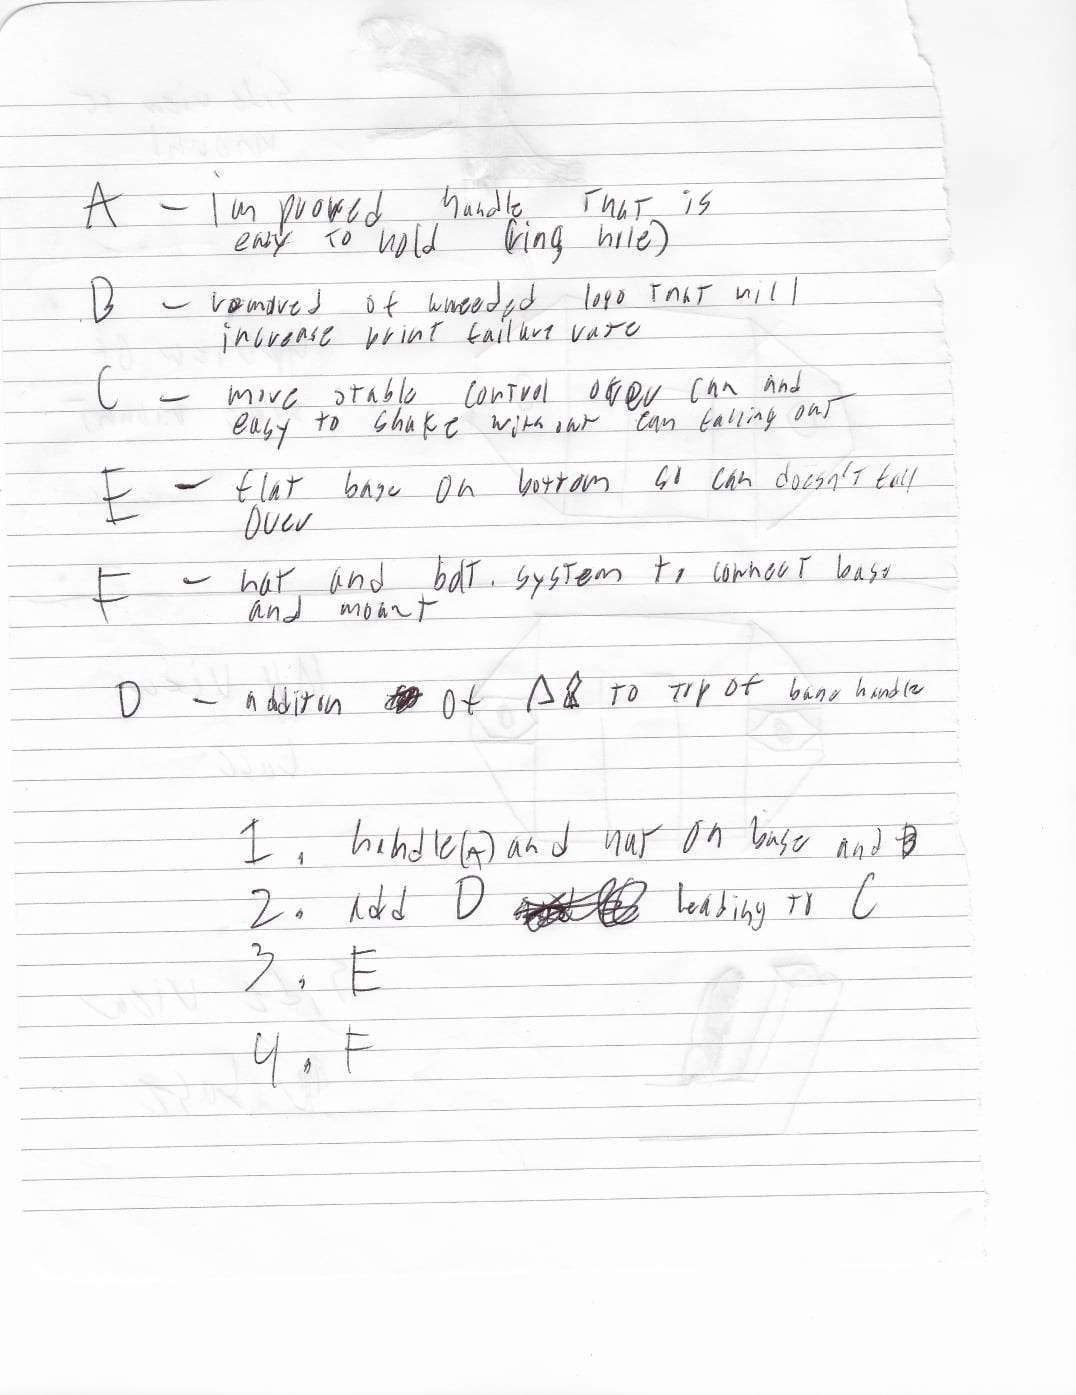 A – Improved handle That is
easy To hold (ring hole)
B – removed of unneeded logo That will
increase print failure rate
C – more stable control over can and
easy to shake without can falling out
E – flat base on bottom so can doesn't fall
over
F – nut and bolt system to connect base
and mount
D – additon of to top of handle
1. handle(A) and nut on base and B
2. Add D leading to C
3. E
4. F
Side view of
mount
view of
view
base
Side view
base